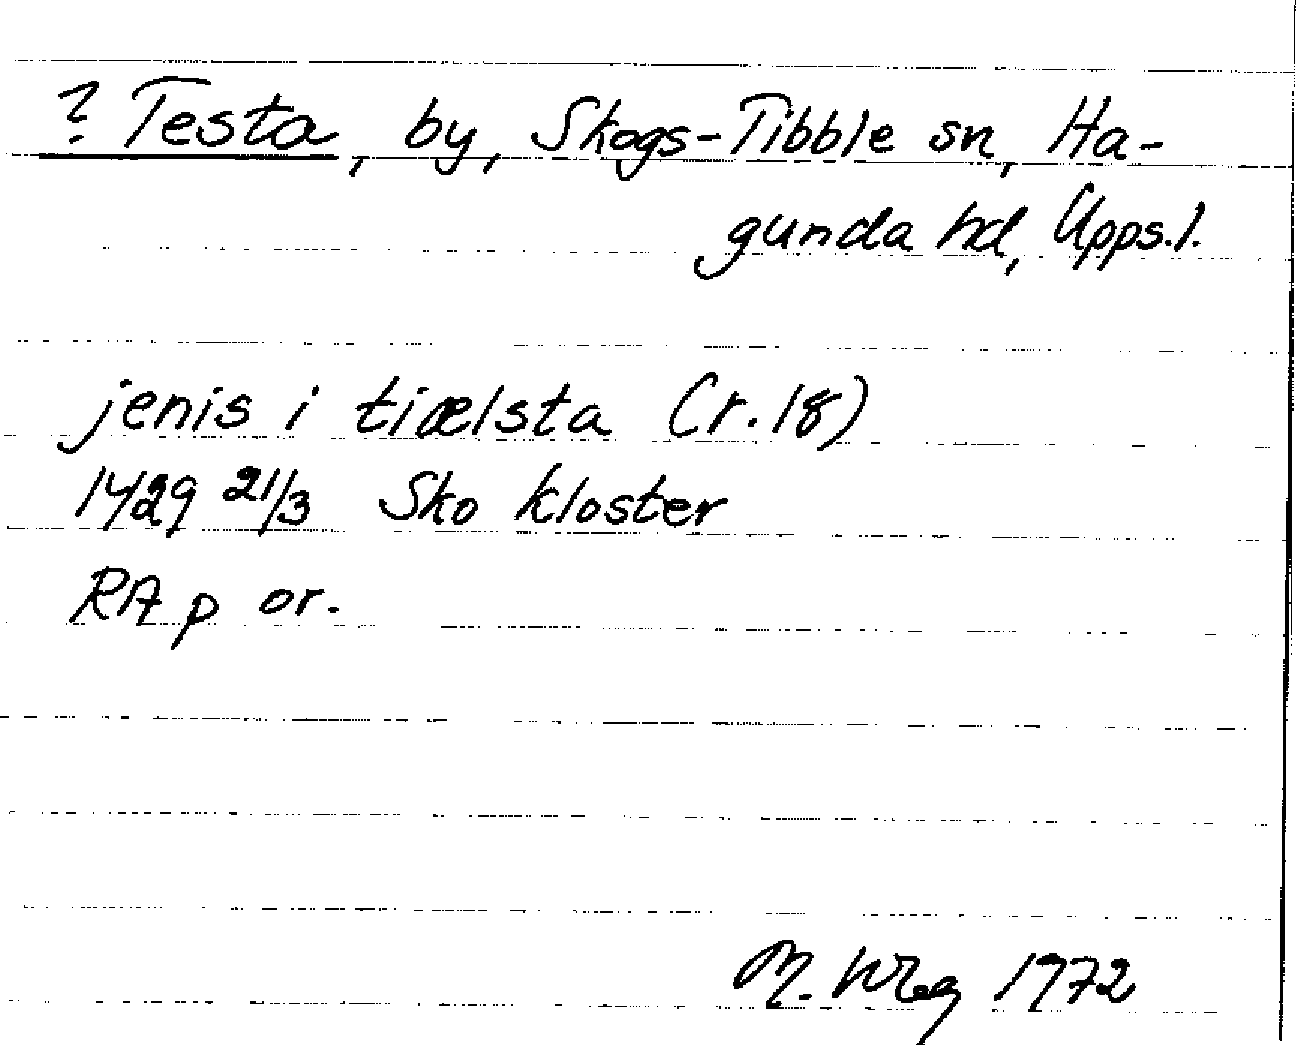 ? Testa, by, Skogs-Tibble sn, Ha-
gunda hd, Upps.l.
jenis i tiælsta (r.18)
1429 21/3 Sko kloster
RA p or.
M. 1972